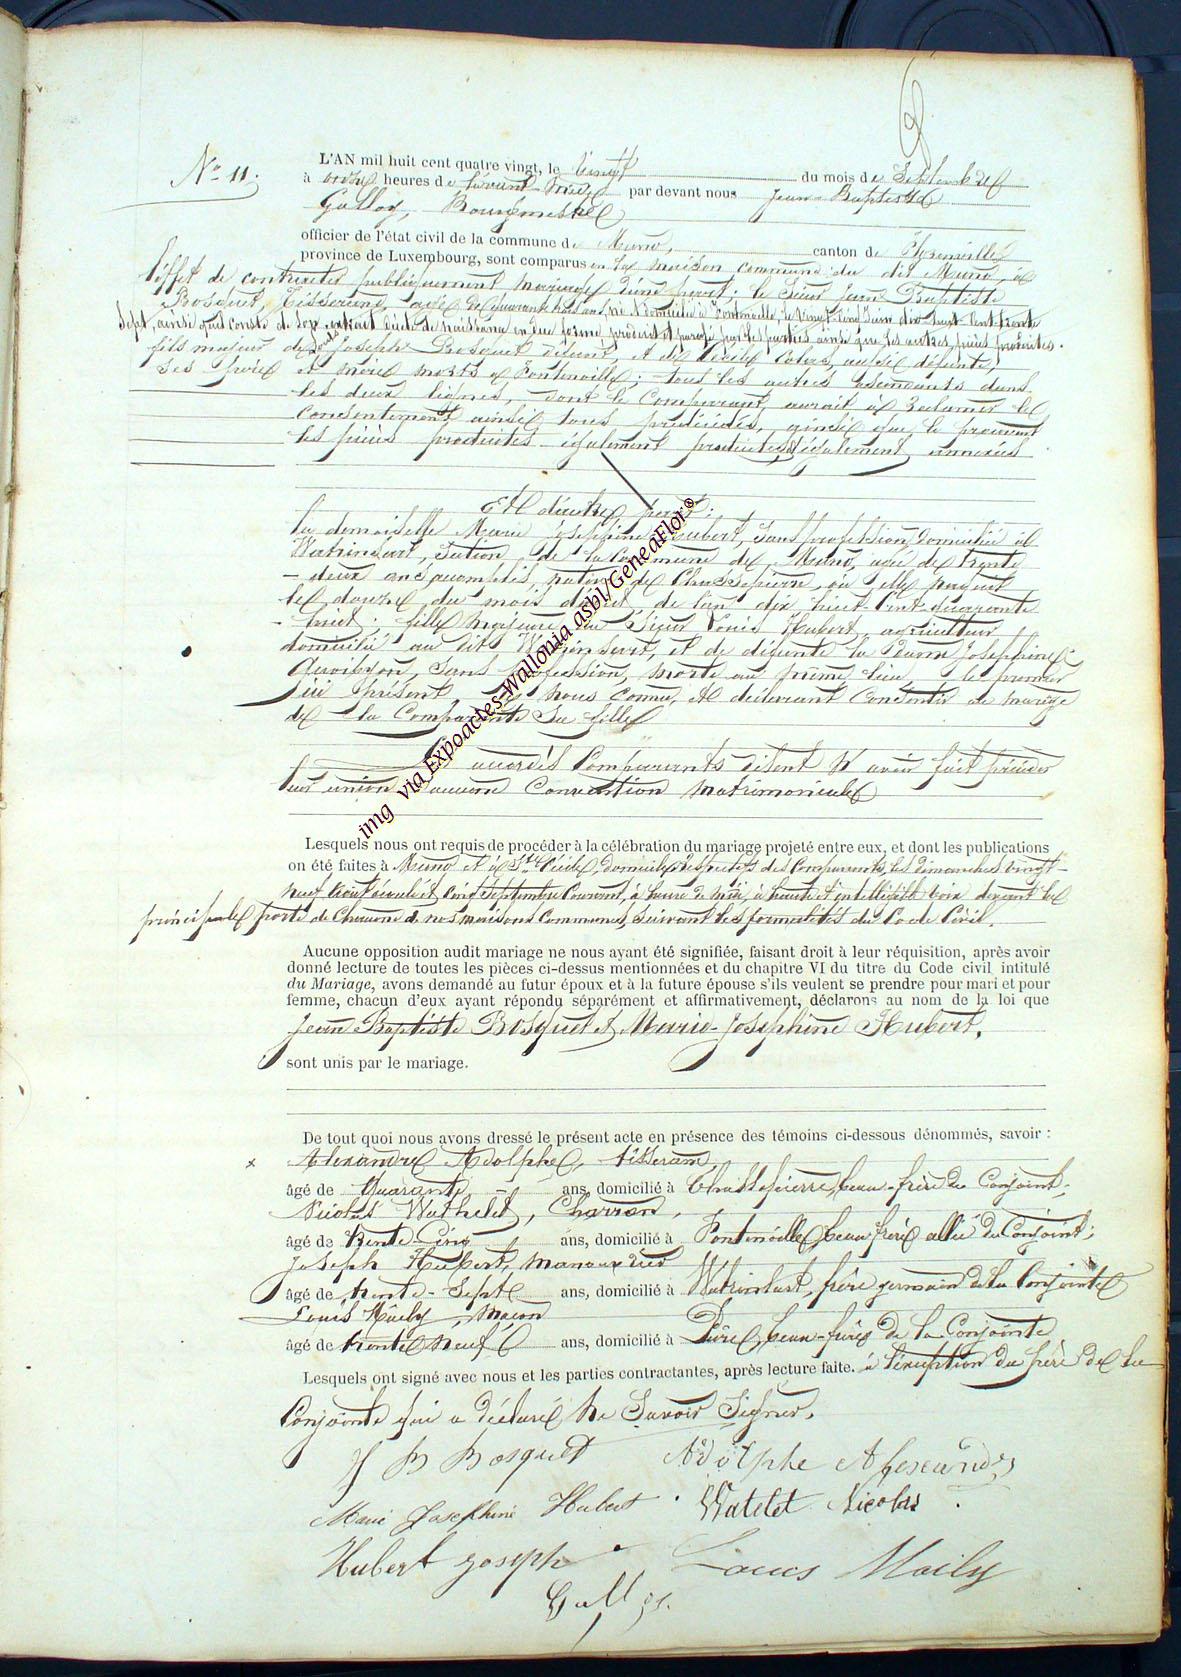 6
N° 11.
L'AN mil huit cent quatre vingt, le vingt du mois de Septembre
à onze heures de avant-midi par devant nous Jean-Baptiste
Galloy, Bourgmestre
officier de l'état civil de la commune de Muno, canton de Florenville
province de Luxembourg, sont comparus en la maison commune du dit Muno, à
l'effet de contracter publiquement mariage d'une part: le Sieur Jean Baptiste
Bosquet, Tisserand, âgé de quarante trois ans, né & domicilié à Fontenoille, le vingt-cinq Juin dix-huit-cent-trente
Sept, ainsi qu'il conste de son extrait d'acte de naissance en due forme, produit et paraphé par les parties ainsi que les autres pièces produites.
fils majeur de Joseph Bosquet défunt, et de Cécile Colas, aussi défunte,
ses père et mère morts à Fontenoille; tous les autres ascendants dans
les deux lignes, dont le Comparant aurait à réclamer le
consentement, ainsi tous prédécédés, ainsi que le prouvent
les pièces produites également produites & également annexées
Et d'autre part:
la demoiselle Marie Joséphine Hubert, sans profession, domiciliée à
Watrinsart, Section de la Commune de Muno, âgée de trente
-deux ans accomplis, native de Chassepierre, où elle naquit
le douze du mois d'Août de l'an dix huit-Cent quarante
-huit; fille majeure du Sieur Louis Hubert, agriculteur
domicilié au dit Watrinsart, et de défunte la Dame Joséphine
sans profession, morte au même lieu, le premier
ici présent, de nous connu, et déclarant Consentir au mariage
de la Comparante Sa fille
Les accordés Comparants disent n'avoir fait précéder
leur union d'aucune Convention Matrimoniale
Lesquels nous ont requis de procéder à la célébration du mariage projeté entre eux, et dont les publications
on été faites à Muno et à Ste Cécile, domiciles respectifs des Comparants, les dimanches vingt-
neuf Août écoulé et cinq Septembre Courant, à heure de Midi, à haute et intelligible voix devant la
principale porte de Chacune de nos maisons Communes, suivant les formalités du Code Civil.
Aucune opposition audit mariage ne nous ayant été signifiée, faisant droit à leur réquisition, après avoir
donné lecture de toutes les pièces ci-dessus mentionnées et du chapitre VI du titre du Code civil intitulé
du Mariage, avons demandé au futur époux et à la future épouse s'ils veulent se prendre pour mari et pour
femme, chacun d'eux ayant répondu séparément et affirmativement, déclarons au nom de la loi que
Jean Baptiste Bosquet & Marie-Joséphine Hubert,
sont unis par le mariage.
De tout quoi nous avons dressé le présent acte en présence des témoins ci-dessous dénommés, savoir :
x Alexandre Adolphe, tisserand,
âgé de Quarante ans, domicilié à Chassepierre, beau-frère du Conjoint;
Nicolas Wathelet, Charron,
âgé de trente-Cinq ans, domicilié à Fontenoille, beau frère allié du Conjoint;
Joseph Hubert, manouvrier
âgé de trente-Sept ans, domicilié à Watrinsart, frère germain de la Conjointe
Louis Maily, Maçon
âgé de trente neuf ans, domicilié à beau-frère de la Conjointe
Lesquels ont signé avec nous et les parties contractantes, après lecture faite. à l'exception du père de la
Conjointe qui a déclaré ne Savoir Signer.
J B Bosquet Adolphe Alexandre
Marie Josephine Hubert Watelet Nicolas
Hubert Joseph Louis Maily
Galloy.
img via Expoactes-Wallonia asbl/GeneaFlor©